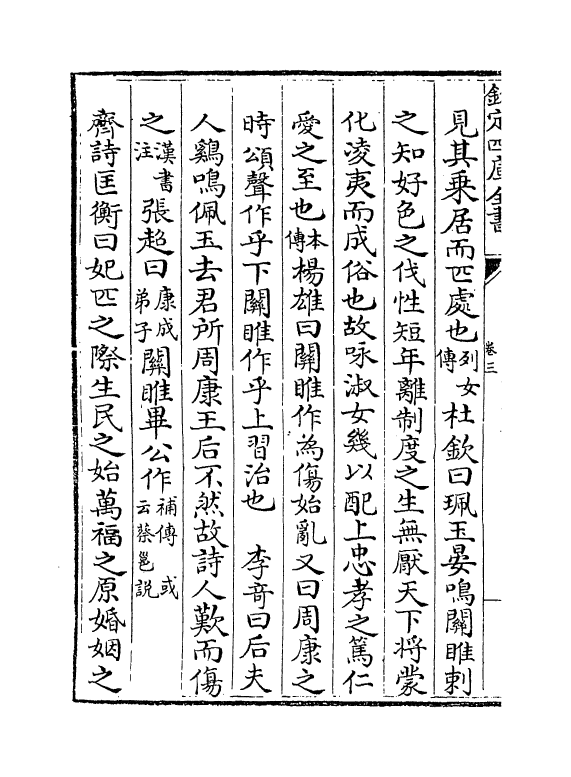 欽定四庫全書
卷三
見其乗居而匹處也列女傳杜欽曰珮玉晏鳴關雎刺
之知好色之伐性短年離制度之生無厭天下将蒙
化凌夷而成俗也故咏淑女幾以配上忠孝之篤仁
愛之至也本傳楊雄曰關雎作為傷始亂又曰周康之
時頌聲作乎下關雎作乎上習治也　李竒曰后夫
人鷄鳴佩玉去君所周康王后不然故詩人歎而傷
之漢書注張超曰康成弟子關雎畢公作補傳或云蔡邕説
齊詩匡衡曰妃匹之際生民之始萬福之原婚姻之